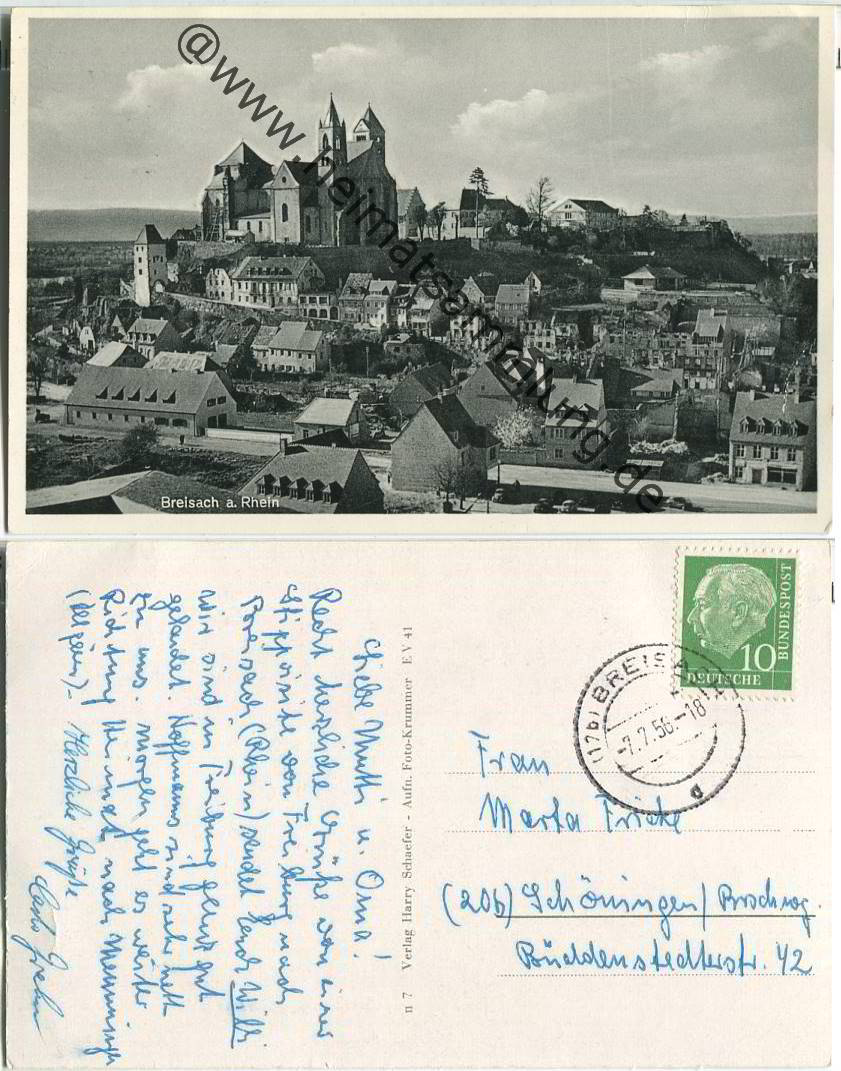 @www.heimatsammlung.de
Breisach a. Rhein
Liebe Mutti u. Oma!
Recht herzliche Grüße von einer
Stippvisite von Freiburg nach
Breisach (Rhein) sendet Euch Willi
Wir sind in Freiburg ganz gut
gelandet. Hoffmanns sind sehr nett
zu uns. Morgen geht es weiter
Richtung Heimat nach Memmingen
(Allgäu)- Herzliche Grüße
n 7 Verlag Harry Schaefer - Aufn. Foto-Krummer EV 41
10
DEUTSCHE
BUNDESPOST
(17b) BREISACH
-7.7.56.-18
a
Frau
Marta Fricke
(20b) Schöningen/Brschwg.
Büddenstedterstr. 42